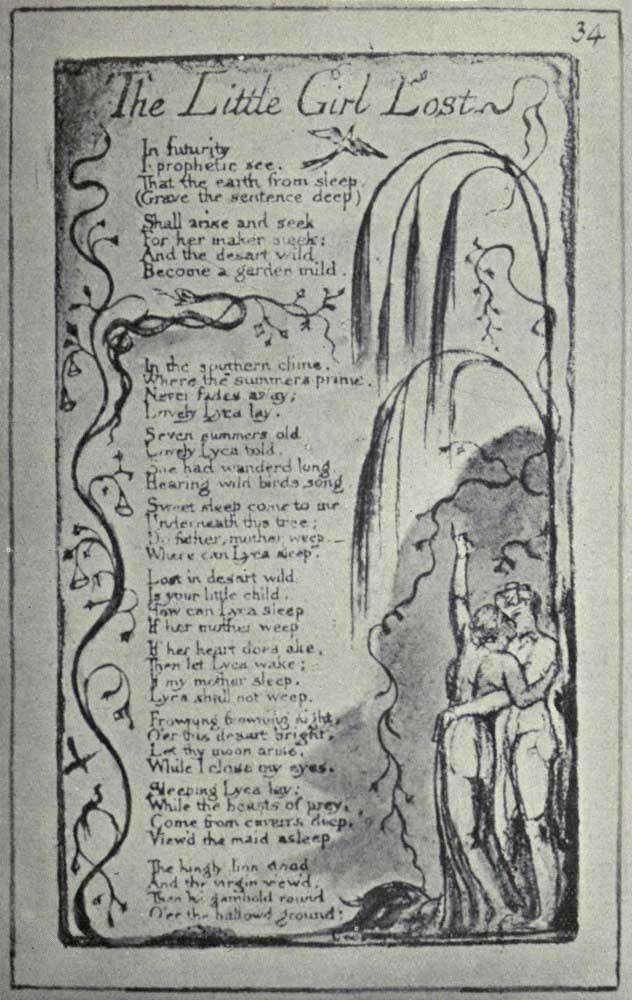 34
The Little Girl Lost
In futurity
I prophetic see.
That the earth from sleep.
(Grave the sentence deep)
Shall arise and seek
For her maker meek:
And the desart wild
Become a garden mild.
In the southern clime,
Where the summers prime,
Never fades away;
Lovely Lyca lay.
Seven summers old
Lovely Lyca told,
She had wanderd long,
Hearing wild birds song
Sweet sleep come to me
Underneath this tree;
Do father, mother weep.—
Where can Lyca sleep
Lost in desart wild
Is your little child.
How can Lyca sleep
If her mother weep
If her heart does ake,
Then let Lyca wake;
If my mother sleep,
Lyca shall not weep.
Frowning frowning night,
O'er this desart bright,
Let thy moon arise,
While I close my eyes.
Sleeping Lyca lay;
While the beasts of prey,
Come from caverns deep,
View'd the maid asleep
The kingly lion stood
And the virgin view'd,
Then he gambold round
O'er the hallowd ground: